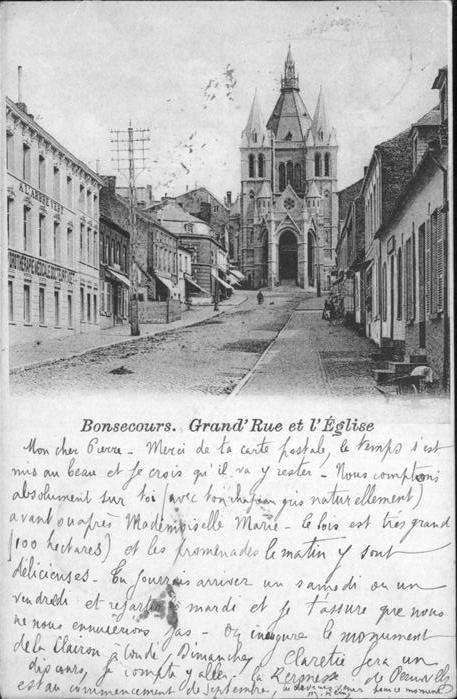 A L'ARBRE VERT
Bonsecours. Grand'Rue et l'Église
Mon cher Pierre - Merci de ta carte postale, le temps s'est
mis au beau et je crois qu'il va y rester - Nous comptons
absolument sur toi (avec ton chapeau gris naturellement)
avant ou après Mademoiselle Marie - le bois est très grand
(100 hectares) et les promenades le matin y sont
délicieuses - Tu pourrais arriver un samedi ou un
vendredi et repartir mardi et je t'assure que nous
ne nous ennuierons pas - On inaugure le monument
de la Clairon à Condé, Dimanche, Claretie fera un
discours, je compte y aller - la Kermesse de
est au commencement de Septembre,